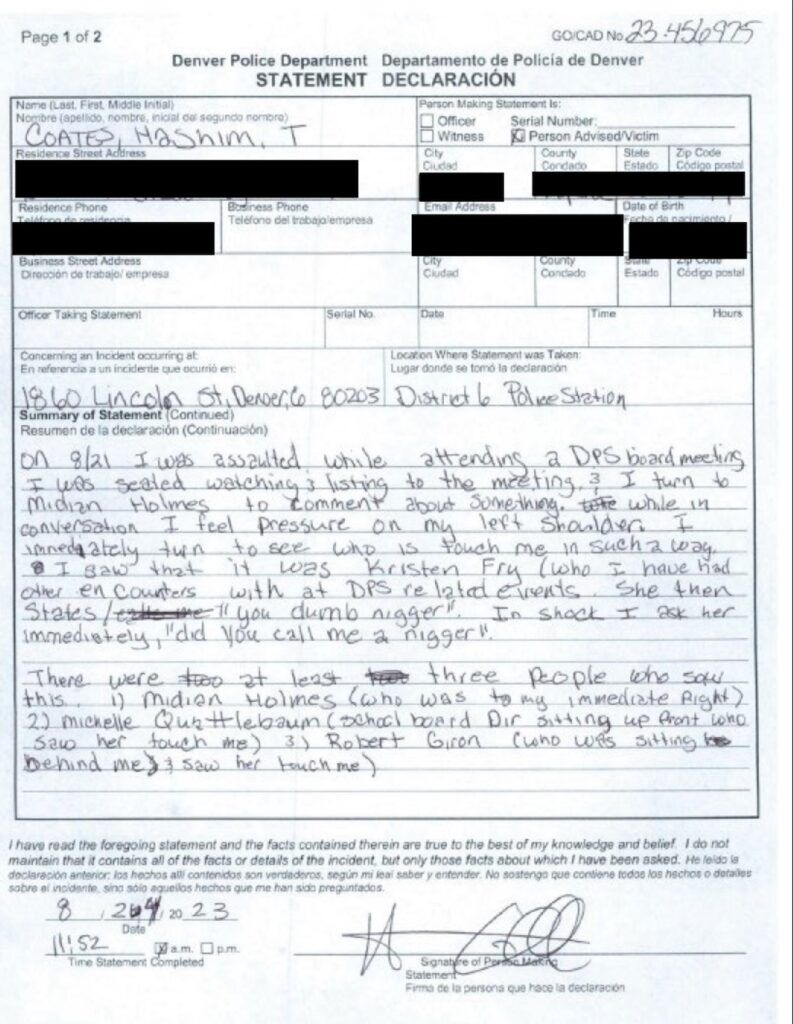 Page 1 of 2
GO/CAD No 23-456975
Denver Police Department Departamento de Policía de Denver
STATEMENT DECLARACIÓN
Name (Last, First, Middle Initial)
Nombre (apellido, nombre, inicial del segundo nombre)
COATES, Hashim, T
Person Making Statement Is:
Officer Serial Number:
Witness Person Advised/Victim
Residence Street Address
City County State Zip Code
Ciudad Condado Estado Código postal
Residence Phone Business Phone Email Address Date of Birth
Teléfono de residencia Teléfono del trabajo/empresa Fecha de nacimiento /
Business Street Address
Dirección de trabajo/ empresa
City County State Zip Code
Ciudad Condado Estado Código postal
Officer Taking Statement Serial No. Date Time Hours
Concerning an Incident occurring at:
En referencia a un incidente que ocurrió en:
1860 Lincoln St, Denver, Co 80203
Location Where Statement was Taken:
Lugar donde se tomó la declaración
District 6 Police Station
Summary of Statement (Continued)
Resumen de la declaración (Continuación)
On 8/21 I was assaulted while attending a DPS board meeting
I was seated watching & listing to the meeting. & I turn to
Midian Holmes to comment about something. while in
conversation I feel pressure on my left shoulder. I
immediately turn to see who is touch me in such a way.
I saw that it was Kristen Fry (who I have had
other encounters with at DPS related events. She then
States/ "you dumb nigger". In shock I ask her
immediately, "did you call me a nigger".
There were at least three people who saw
this. 1) Midian Holmes (who was to my immediate Right)
2) Michelle Quattlebaum (school board Dir sitting up front who
saw her touch me) 3) Robert Giron (who was sitting
behind me & saw her touch me)
I have read the foregoing statement and the facts contained therein are true to the best of my knowledge and belief. I do not
maintain that it contains all of the facts or details of the incident, but only those facts about which I have been asked. He leído la
declaración anterior; los hechos allí contenidos son verdaderos, según mi leal saber y entender. No sostengo que contiene todos los hechos o detalles
sobre el incidente, sino sólo aquellos hechos que me han sido preguntados.
8, 24, 2023
Date
11:52 a.m. p.m.
Time Statement Completed
Signature of Person Making
Statement
Firma de la persona que hace la declaración